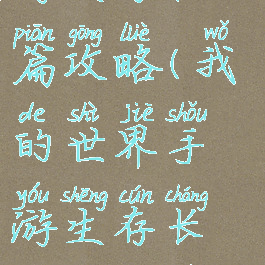 piān gōng lüè wǒ
篇攻略(我
de shì jiè shǒu
的世界手
yóu shēng cún cháng
游生存长